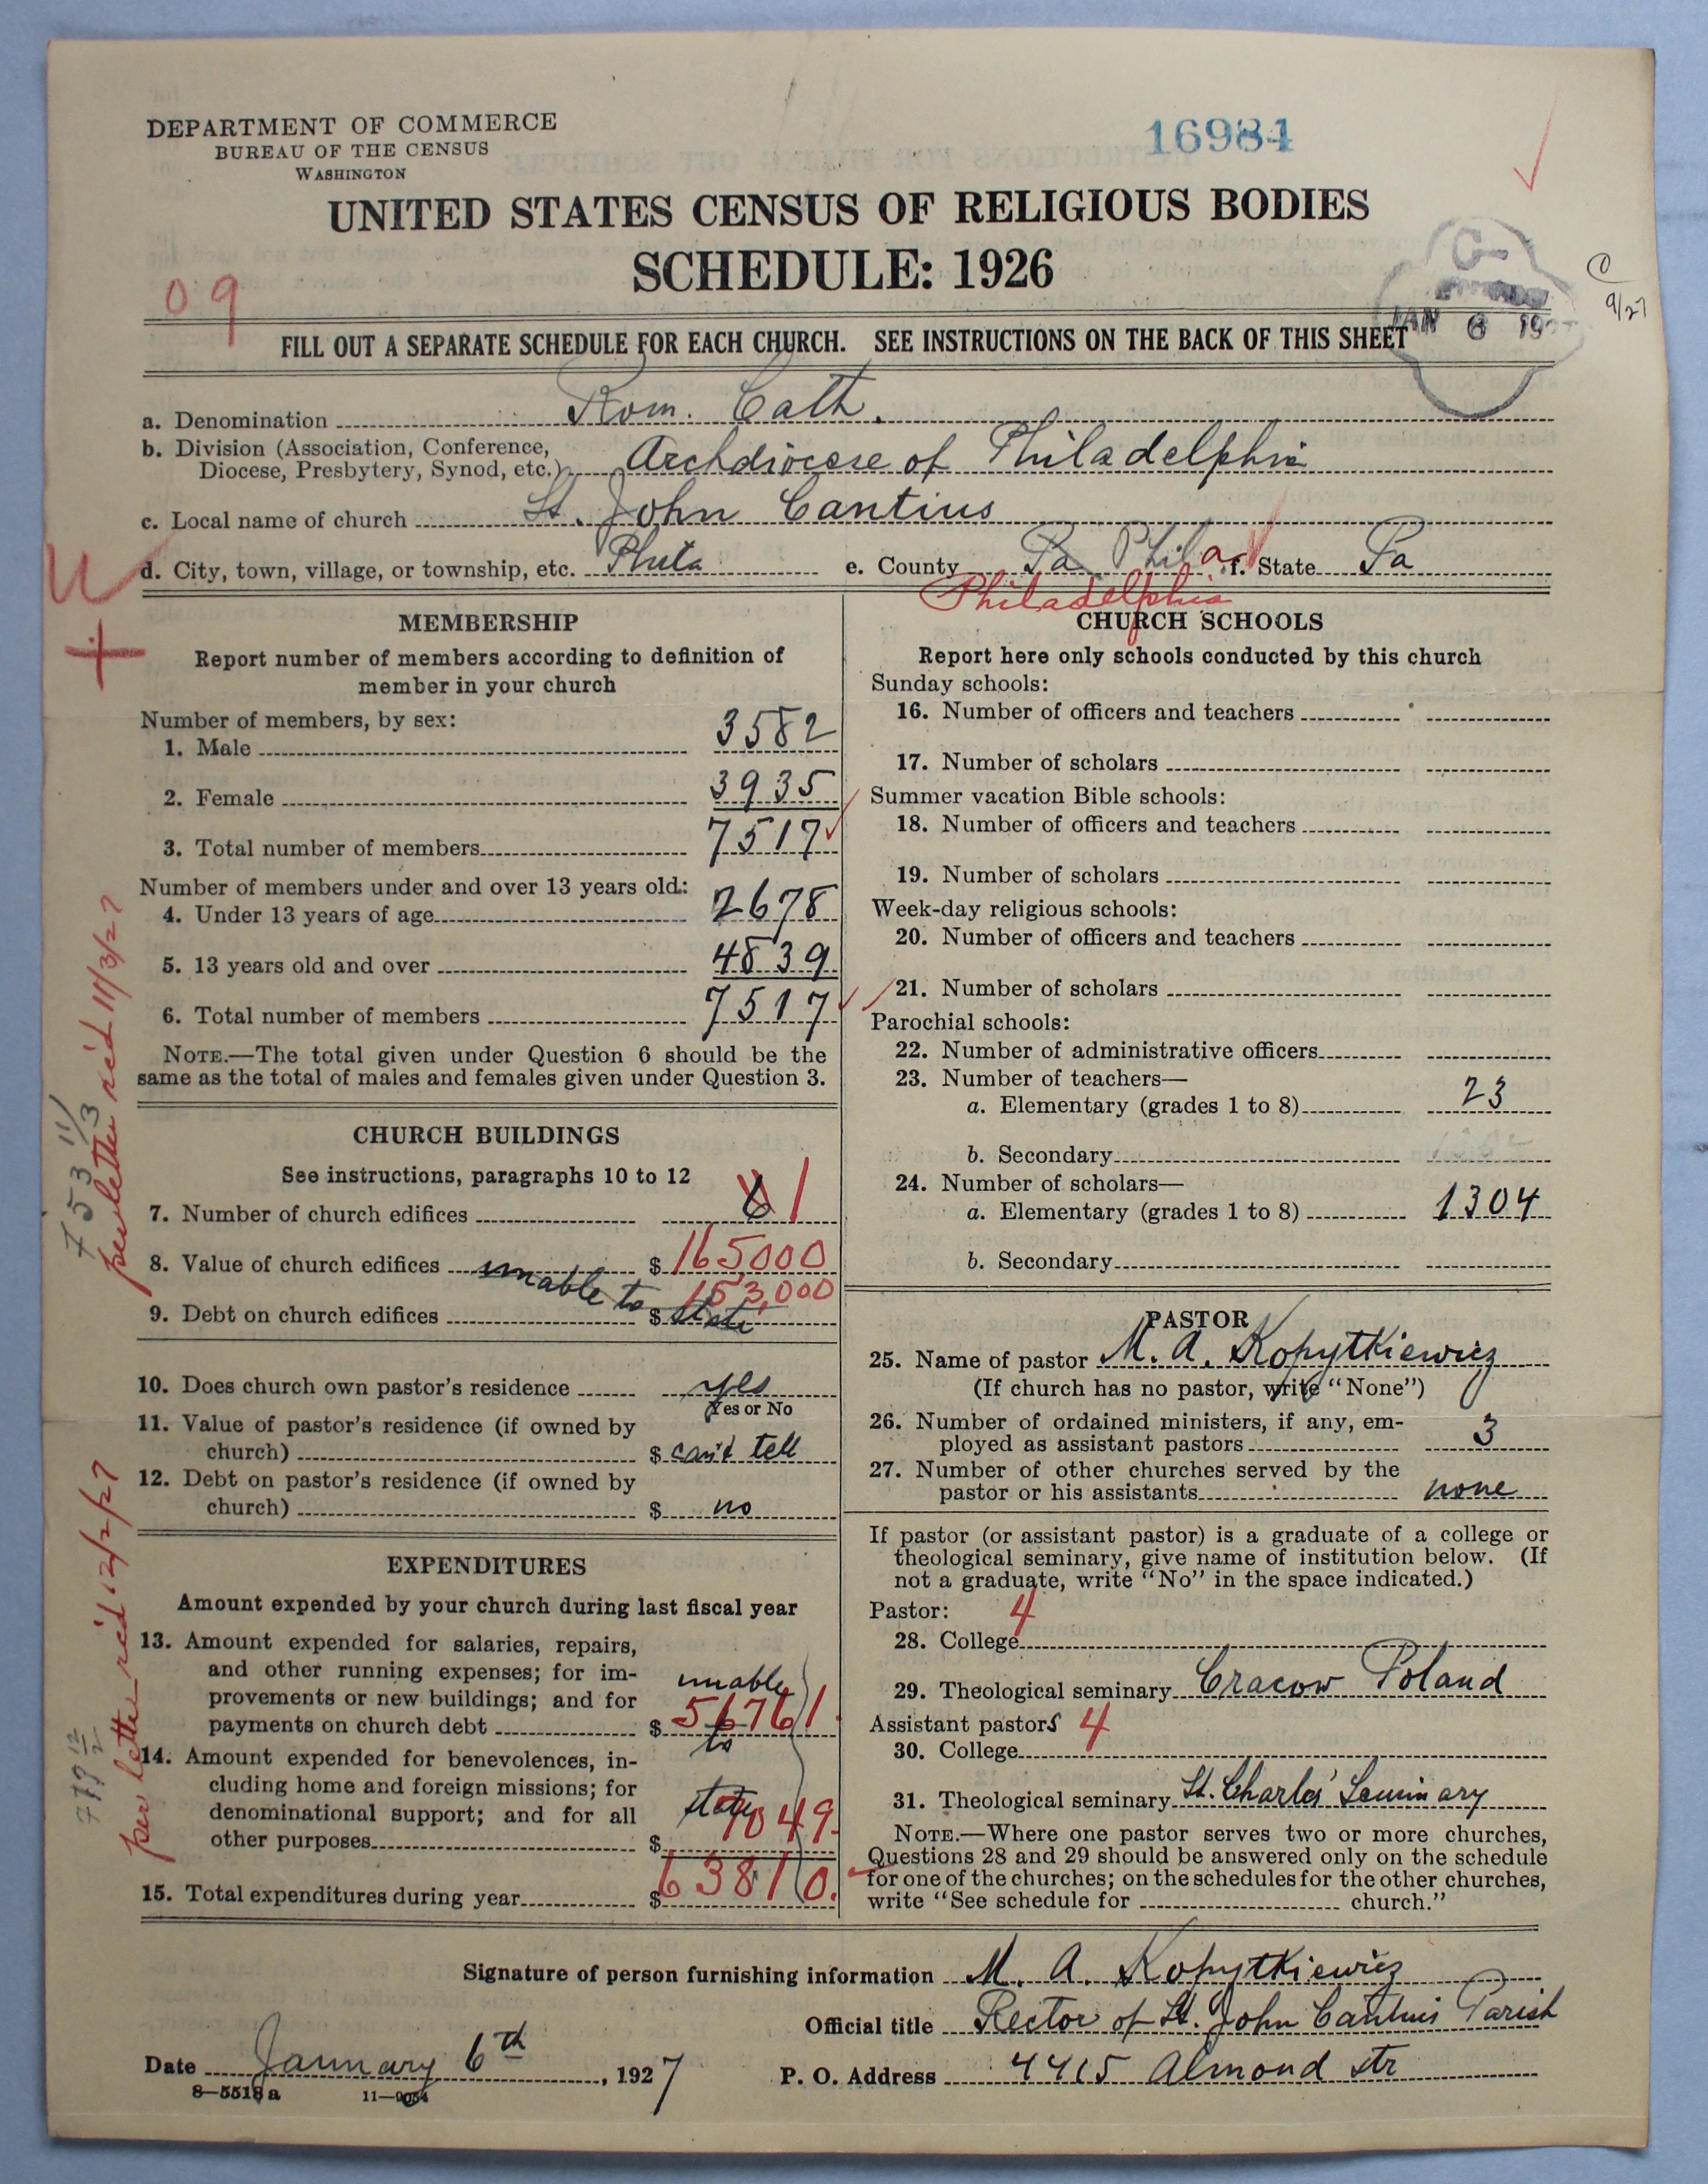 DEPARTMENT OF COMMERCE
BUREAU OF THE CENSUS
WASHINGTON
16984
UNITED STATES CENSUS OF RELIGIOUS BODIES
SCHEDULE: 1926
09
JAN 6 19
9/27
FILL OUT A SEPARATE SCHEDULE FOR EACH CHURCH. SEE INSTRUCTIONS ON THE BACK OF THIS SHEET
a. Denomination Rom. Cath.
b. Division (Association, Conference,
Diocese, Presbytery, Synod, etc.) Archdiocese of Philadelphia
c. Local name of church St. John Cantius
d. City, town, village, or township, etc. Phila e. County Pa Phila f. State Pa
Philadelphia
MEMBERSHIP
Report number of members according to definition of
member in your church
Number of members, by sex:
1. Male 3582
2. Female 3935
3. Total number of members 7517
Number of members under and over 13 years old:
4. Under 13 years of age 2678
5. 13 years old and over 4839
6. Total number of members 7517
NOTE.—The total given under Question 6 should be the
same as the total of males and females given under Question 3.
CHURCH BUILDINGS
See instructions, paragraphs 10 to 12
7. Number of church edifices 1
8. Value of church edifices unable to $ 165,000
153,000
9. Debt on church edifices $ state
10. Does church own pastor's residence yes
Yes or No
11. Value of pastor's residence (if owned by
church) $ can't tell
12. Debt on pastor's residence (if owned by
church) $ no
EXPENDITURES
Amount expended by your church during last fiscal year
13. Amount expended for salaries, repairs,
and other running expenses; for im-
provements or new buildings; and for
payments on church debt $ unable 56761.
to
14. Amount expended for benevolences, in-
cluding home and foreign missions; for
denominational support; and for all
other purposes $ state 7049.
15. Total expenditures during year $ 63810.
CHURCH SCHOOLS
Report here only schools conducted by this church
Sunday schools:
16. Number of officers and teachers
17. Number of scholars
Summer vacation Bible schools:
18. Number of officers and teachers
19. Number of scholars
Week-day religious schools:
20. Number of officers and teachers
21. Number of scholars
Parochial schools:
22. Number of administrative officers
23. Number of teachers—
a. Elementary (grades 1 to 8) 23
b. Secondary
24. Number of scholars—
a. Elementary (grades 1 to 8) 1304
b. Secondary
PASTOR
25. Name of pastor M. A. Kopytkiewicz
(If church has no pastor, write "None")
26. Number of ordained ministers, if any, em-
ployed as assistant pastors 3
27. Number of other churches served by the
pastor or his assistants none
If pastor (or assistant pastor) is a graduate of a college or
theological seminary, give name of institution below. (If
not a graduate, write "No" in the space indicated.)
Pastor: 4
28. College
29. Theological seminary Cracow Poland
Assistant pastors 4
30. College
31. Theological seminary St. Charles' Seminary
NOTE.—Where one pastor serves two or more churches,
Questions 28 and 29 should be answered only on the schedule
for one of the churches; on the schedules for the other churches,
write "See schedule for church."
753 11/3
per letter rec'd 11/3/27
777 12/2
per letter rec'd 12/2/27
Signature of person furnishing information M. A. Kopytkiewicz
Official title Rector of St. John Cantius Parish
Date January 6th, 1927 P. O. Address 4415 Almond str
8-5518a 11-9034